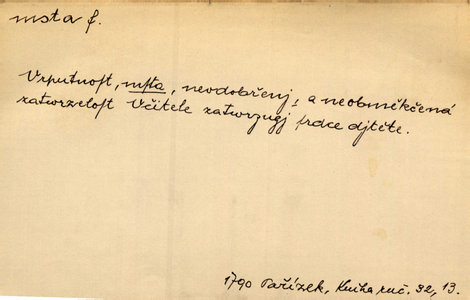 msta f.
Vrputnost, msta, neodobřenj, a neobměkčená
zatwrzelost Včitele zatwrzugj srdce djtěte.
1790 Pařízek, Kniha ruč. 32, 13.